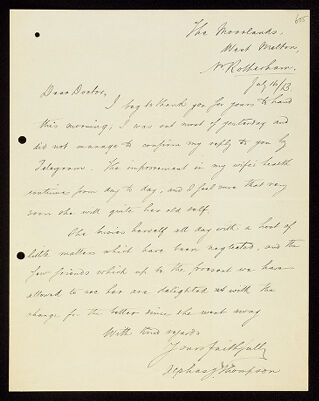 65
The Moorlands,
West Melton,
Nr Rotherham.
July 16/13.
Dear Doctor,
I beg to thank you for yours to hand
this morning; I was out most of yesterday and
did not manage to confirm my reply to you by
Telegram. The improvement in my wife's health
continues from day to day, and I feel sure that very
soon she will quite her old self.
She busies herself all day with a host of
little matters which have been neglected, and the
few friends which up to the present we have
allowed to see her are delighted with the
change for the better since she went away
With kind regards
Yours faithfully
Thompson